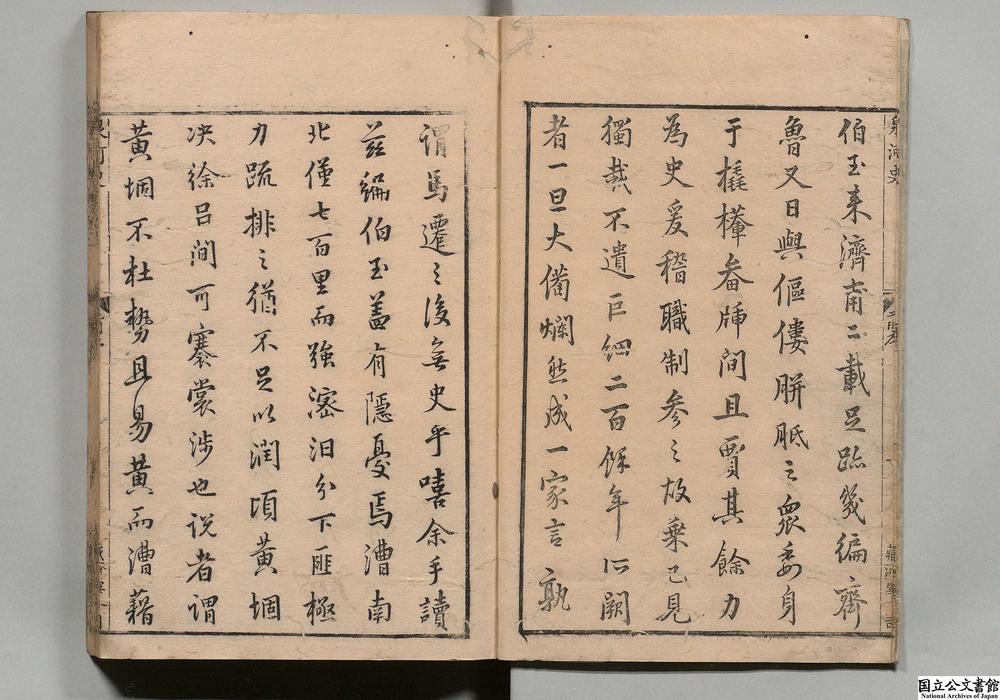 泉河史
伯玉来濟甯二載足跡幾徧齊
魯又日與傴僂胼胝之衆委身
于橇樏畚牐間且賈其餘力
為史爰稽職制參之故乗已見
獨哉不遺巨細二百餘年
闕
者一旦大備爛然成一家言孰
謂馬遷之後無史乎嘻余手讀
茲編伯玉蓋有隱憂焉漕南
北僅七百里而強濬汨分下匪極
力疏排之猶不足以潤頃黃堌
决徐吕間可褰裳涉也説者謂
黃堌不杜勢且易黃而漕藉
国立公文書館
National Archives of Japan